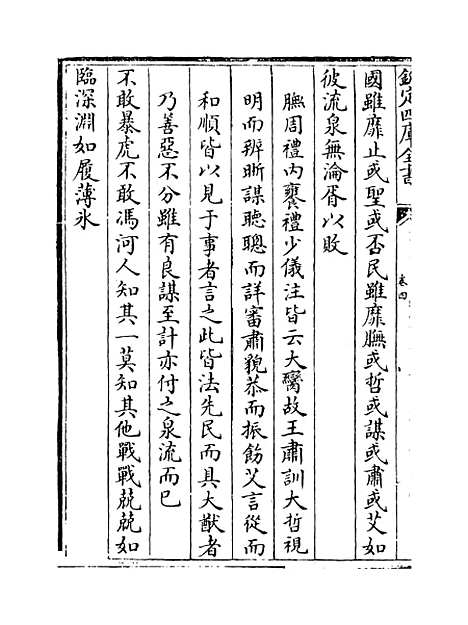 欽定四庫全書
卷四
國雖靡止或聖或否民雖靡膴或哲或謀或肅或艾如
彼流泉無淪胥以敗
膴周禮內饔禮少儀注皆云大臠故王肅訓大哲視
明而辨晰謀聽聰而詳審肅貌恭而振飭艾言從而
和順皆以見于事者言之此皆法先民而具大猷者
乃善惡不分雖有良謀至計亦付之泉流而已
不敢暴虎不敢馮河人知其一莫知其他戰戰兢兢如
臨深淵如履薄氷